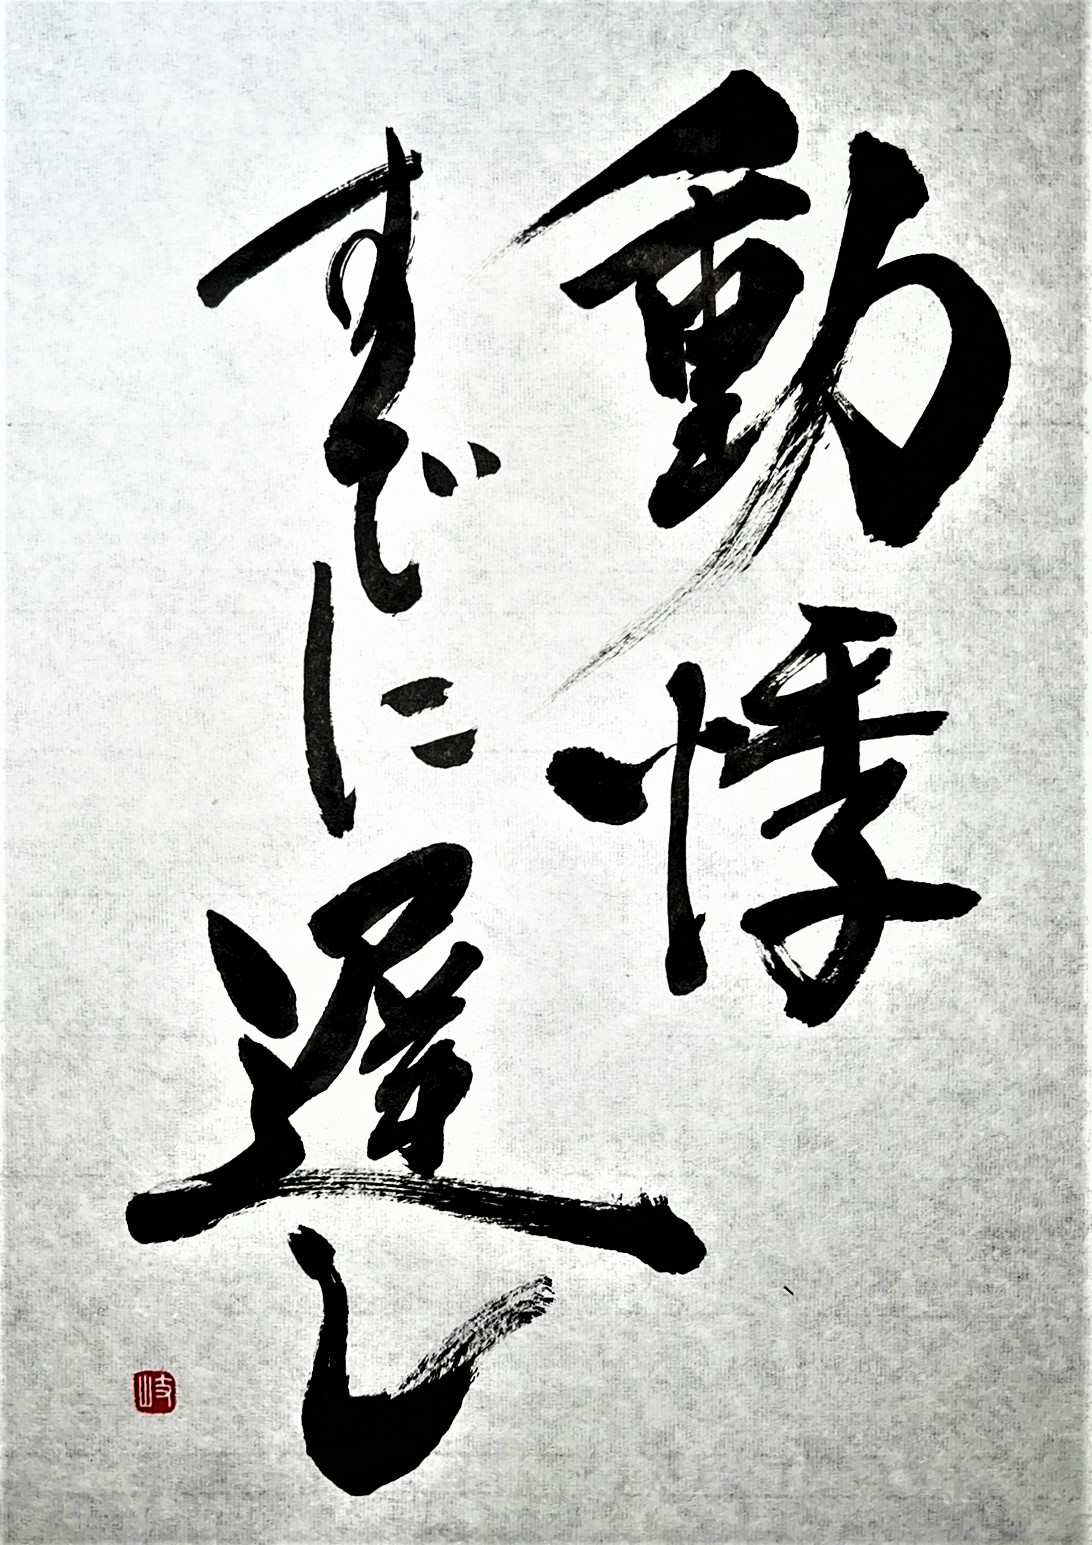 動悸
すでに遅し
岐